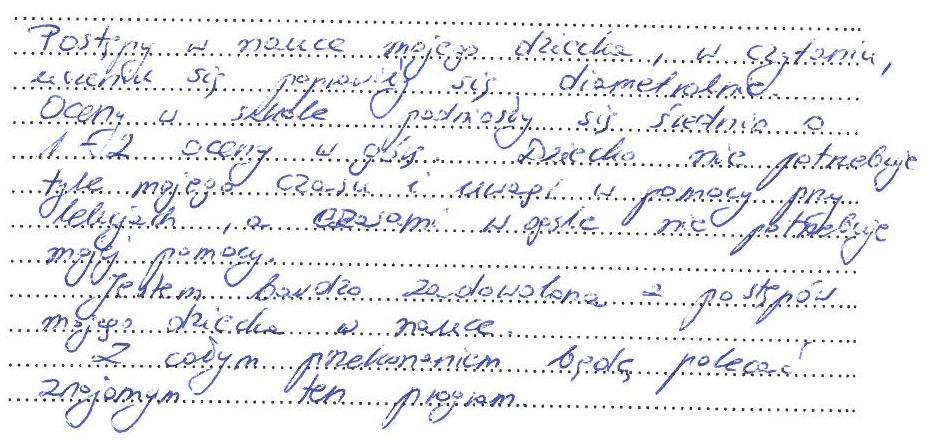 Postępy w nauce mojego dziecka, w czytaniu,
uczeniu się poprawiły się diametralnie.
Oceny w szkole podniosły się średnio o
1-2 oceny w górę. Dziecko nie potrzebuje
tyle mojego czasu i uwagi w pomocy przy
lekcjach, a czasami w ogóle nie potrzebuje
mojej pomocy.
Jestem bardzo zadowolona z postępów
mojego dziecka w nauce.
Z całym przekonaniem będę polecać
znajomym ten program.